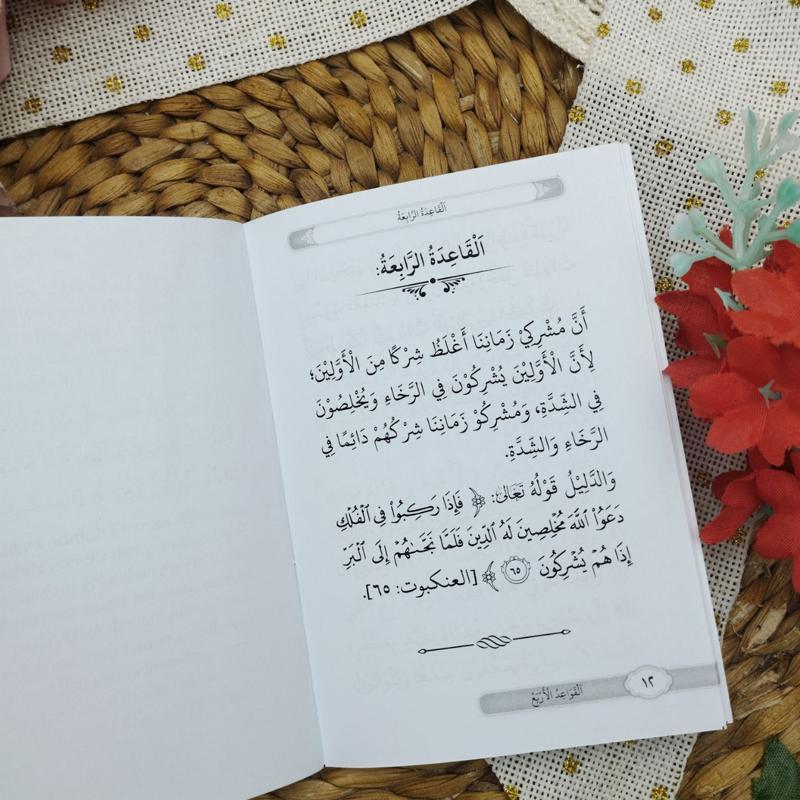 اَلْقَاعِدَةُ الرَّابِعَةُ
اَلْقَاعِدَةُ الرَّابِعَةُ:
أَنَّ مُشْرِكِيْ زَمَانِنَا أَغْلَظُ شِرْكًا مِنَ الْأَوَّلِيْنَ؛
لِأَنَّ الْأَوَّلِيْنَ يُشْرِكُوْنَ فِي الرَّخَاءِ وَيُخْلِصُوْنَ
فِي الشِّدَّةِ، وَمُشْرِكُوْ زَمَانِنَا شِرْكُهُمْ دَائِمًا فِي
الرَّخَاءِ وَالشِّدَّةِ.
وَالدَّلِيْلُ قَوْلُهُ تَعَالَىٰ: ﴿ فَإِذَا رَكِبُوا۟ فِى ٱلْفُلْكِ
دَعَوُا۟ ٱللَّهَ مُخْلِصِينَ لَهُ ٱلدِّينَ فَلَمَّا نَجَّىٰهُمْ إِلَى ٱلْبَرِّ
إِذَا هُمْ يُشْرِكُونَ ٦٥ ﴾ [العنكبوت: ٦٥].
اَلْقَوَاعِدُ الْأَرْبَعُ
١٢